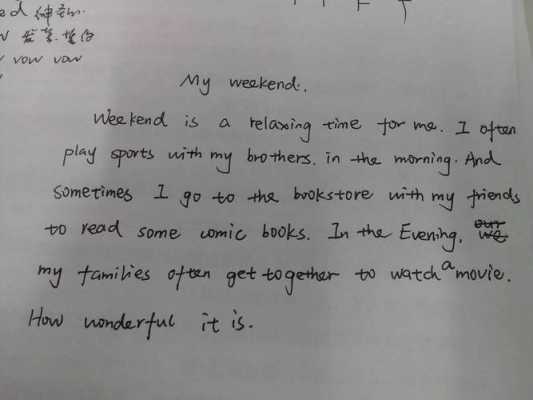 ed 绅士.
发誓.
vow vow
My weekend.
Weekend is a relaxing time for me. I often
play sports with my brothers. in the morning. And
sometimes I go to the bookstore with my friends
to read some comic books. In the Evening,
my families often get together to watch a movie.
How wonderful it is.